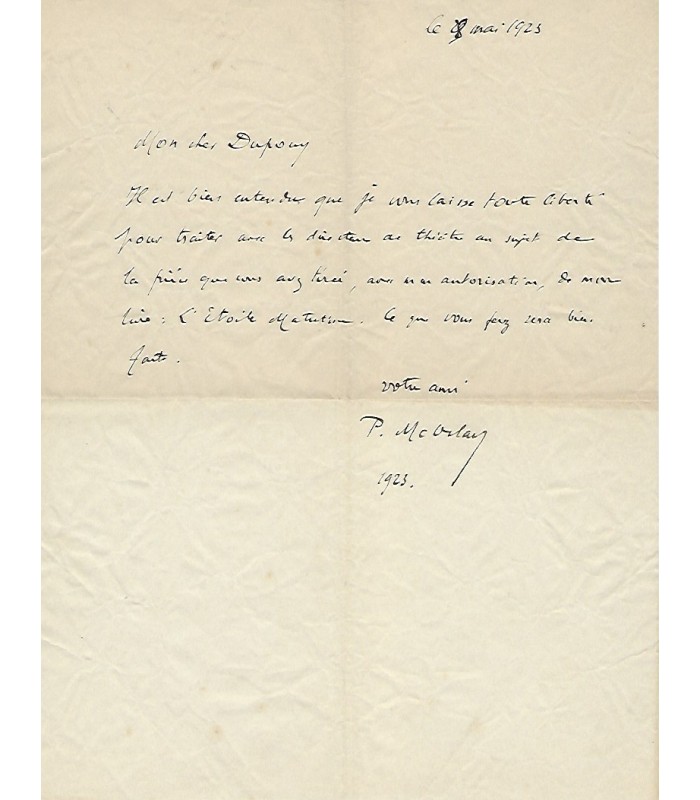 le 8 mai 1923
Mon cher Dupouy
Il est bien entendu que je vous laisse toute liberté
pour traiter avec les directeurs de théâtre au sujet de
la pièce que vous avez tirée, avec mon autorisation, de mon
livre : L'Etoile Matutine. Ce que vous ferez sera bien
fait.
votre ami
P. Mc Orlan
1923.